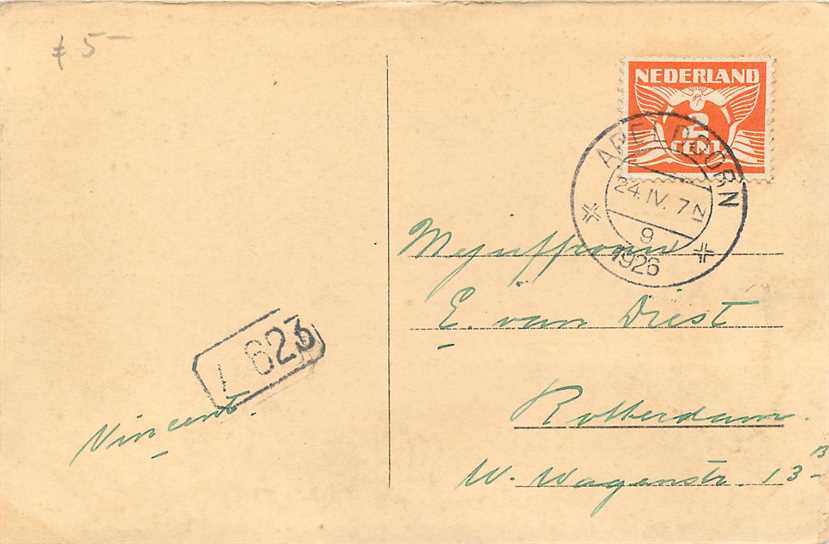 ƒ 5-
NEDERLAND
2
CENT
APELDOORN
24.IV. 7 N
9
1926
Mejuffrouw
E. van Driest
Rotterdam.
W. Wagenstr. 13 B
1 623
Vincent.